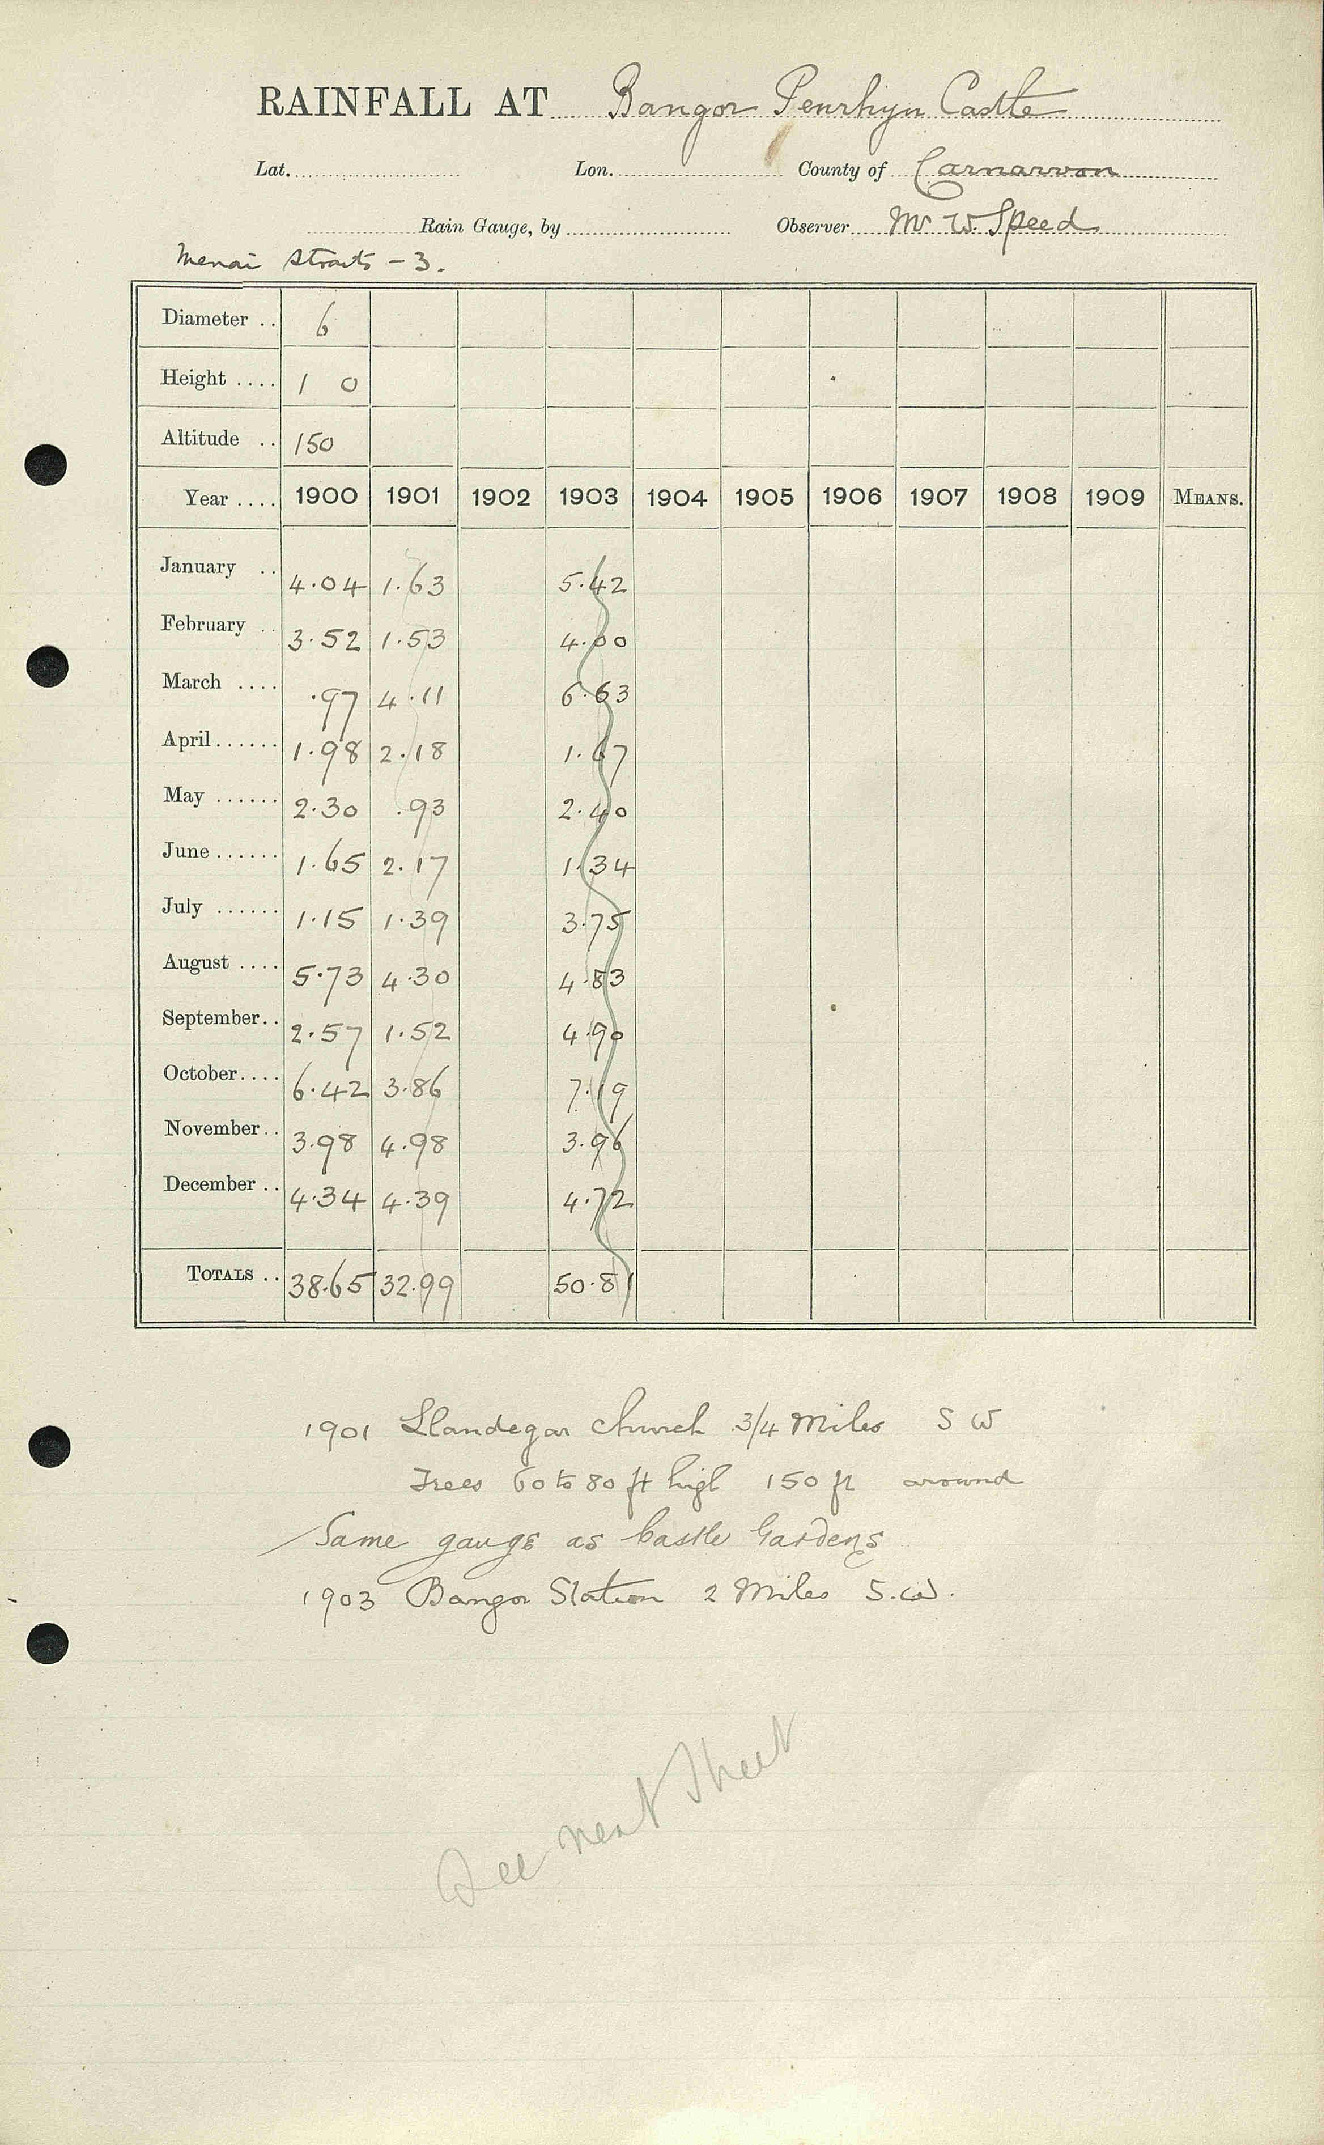 RAINFALL AT Bangor Penrhyn Castle
Lat. Lon. County of Carnarvon
Rain Gauge, by Observer Mr W. Speed
Menai Straits - 3.
Diameter .. 6
Height .... 1 0
Altitude .. 150
Year .... 1900 1901 1902 1903 1904 1905 1906 1907 1908 1909 MEANS.
January .. 4.04 1.63 5.42
February .. 3.52 1.53 4.00
March .... .97 4.11 6.63
April ...... 1.98 2.18 1.67
May ...... 2.30 .93 2.40
June ...... 1.65 2.17 1.34
July ...... 1.15 1.39 3.75
August .... 5.73 4.30 4.83
September.. 2.57 1.52 4.90
October.... 6.42 3.86 7.19
November.. 3.98 4.98 3.96
December .. 4.34 4.39 4.72
TOTALS .. 38.65 32.99 50.81
1901 Llandegai Church 3/4 Miles S W
Trees 60 to 80 ft high 150 ft around
Same gauge as Castle Gardens
1903 Bangor Station 2 Miles S.W.
See next Sheet